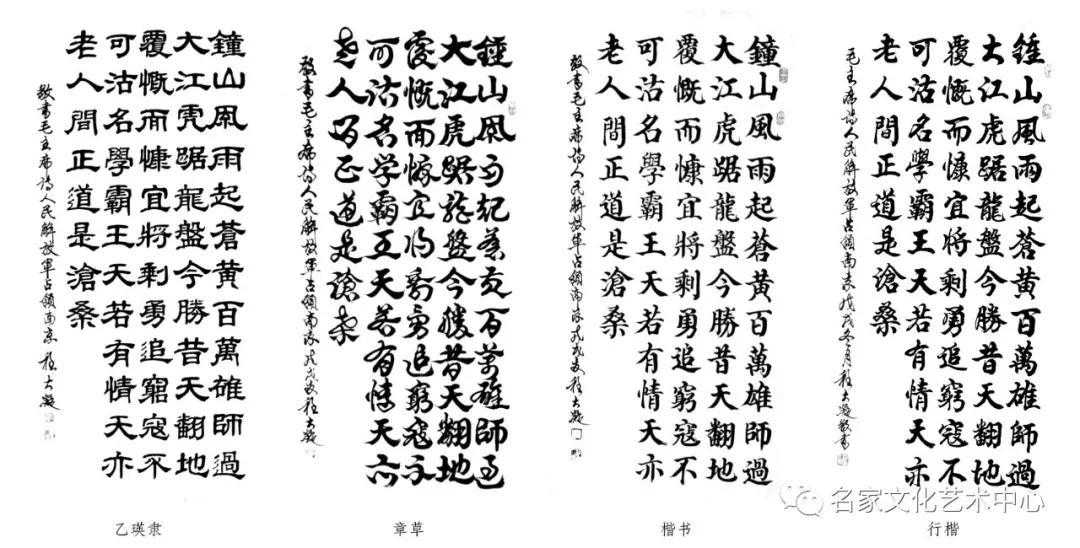 鐘山風雨起蒼黃百萬雄師過
大江虎踞龍盤今勝昔天翻地
覆慨而慷宜將剩勇追窮寇不
可沽名學霸王天若有情天亦
老人間正道是滄桑
敬書毛主席詩人民解放軍占領南京 程大
乙瑛隶
鐘山風雨起蒼黃百萬雄師過
大江虎踞龍盤今勝昔天翻地
覆慨而慷宜將剩勇追窮寇不
可沽名学霸王天若有情天亦
老人間正道是滄桑
敬書毛主席詩人民解放軍占領南京戊戌冬程大
章草
鐘山風雨起蒼黃百萬雄師過
大江虎踞龍盤今勝昔天翻地
覆慨而慷宜將剩勇追窮寇不
可沽名學霸王天若有情天亦
老人間正道是滄桑
敬書毛主席詩人民解放軍占領南京戊戌冬程大
楷书
鐘山風雨起蒼黃百萬雄師過
大江虎踞龍盤今勝昔天翻地
覆慨而慷宜將剩勇追窮寇不
可沽名學霸王天若有情天亦
老人間正道是滄桑
毛主席詩人民解放軍占領南京戊戌冬月程大敬書
行楷
名家文化艺术中心